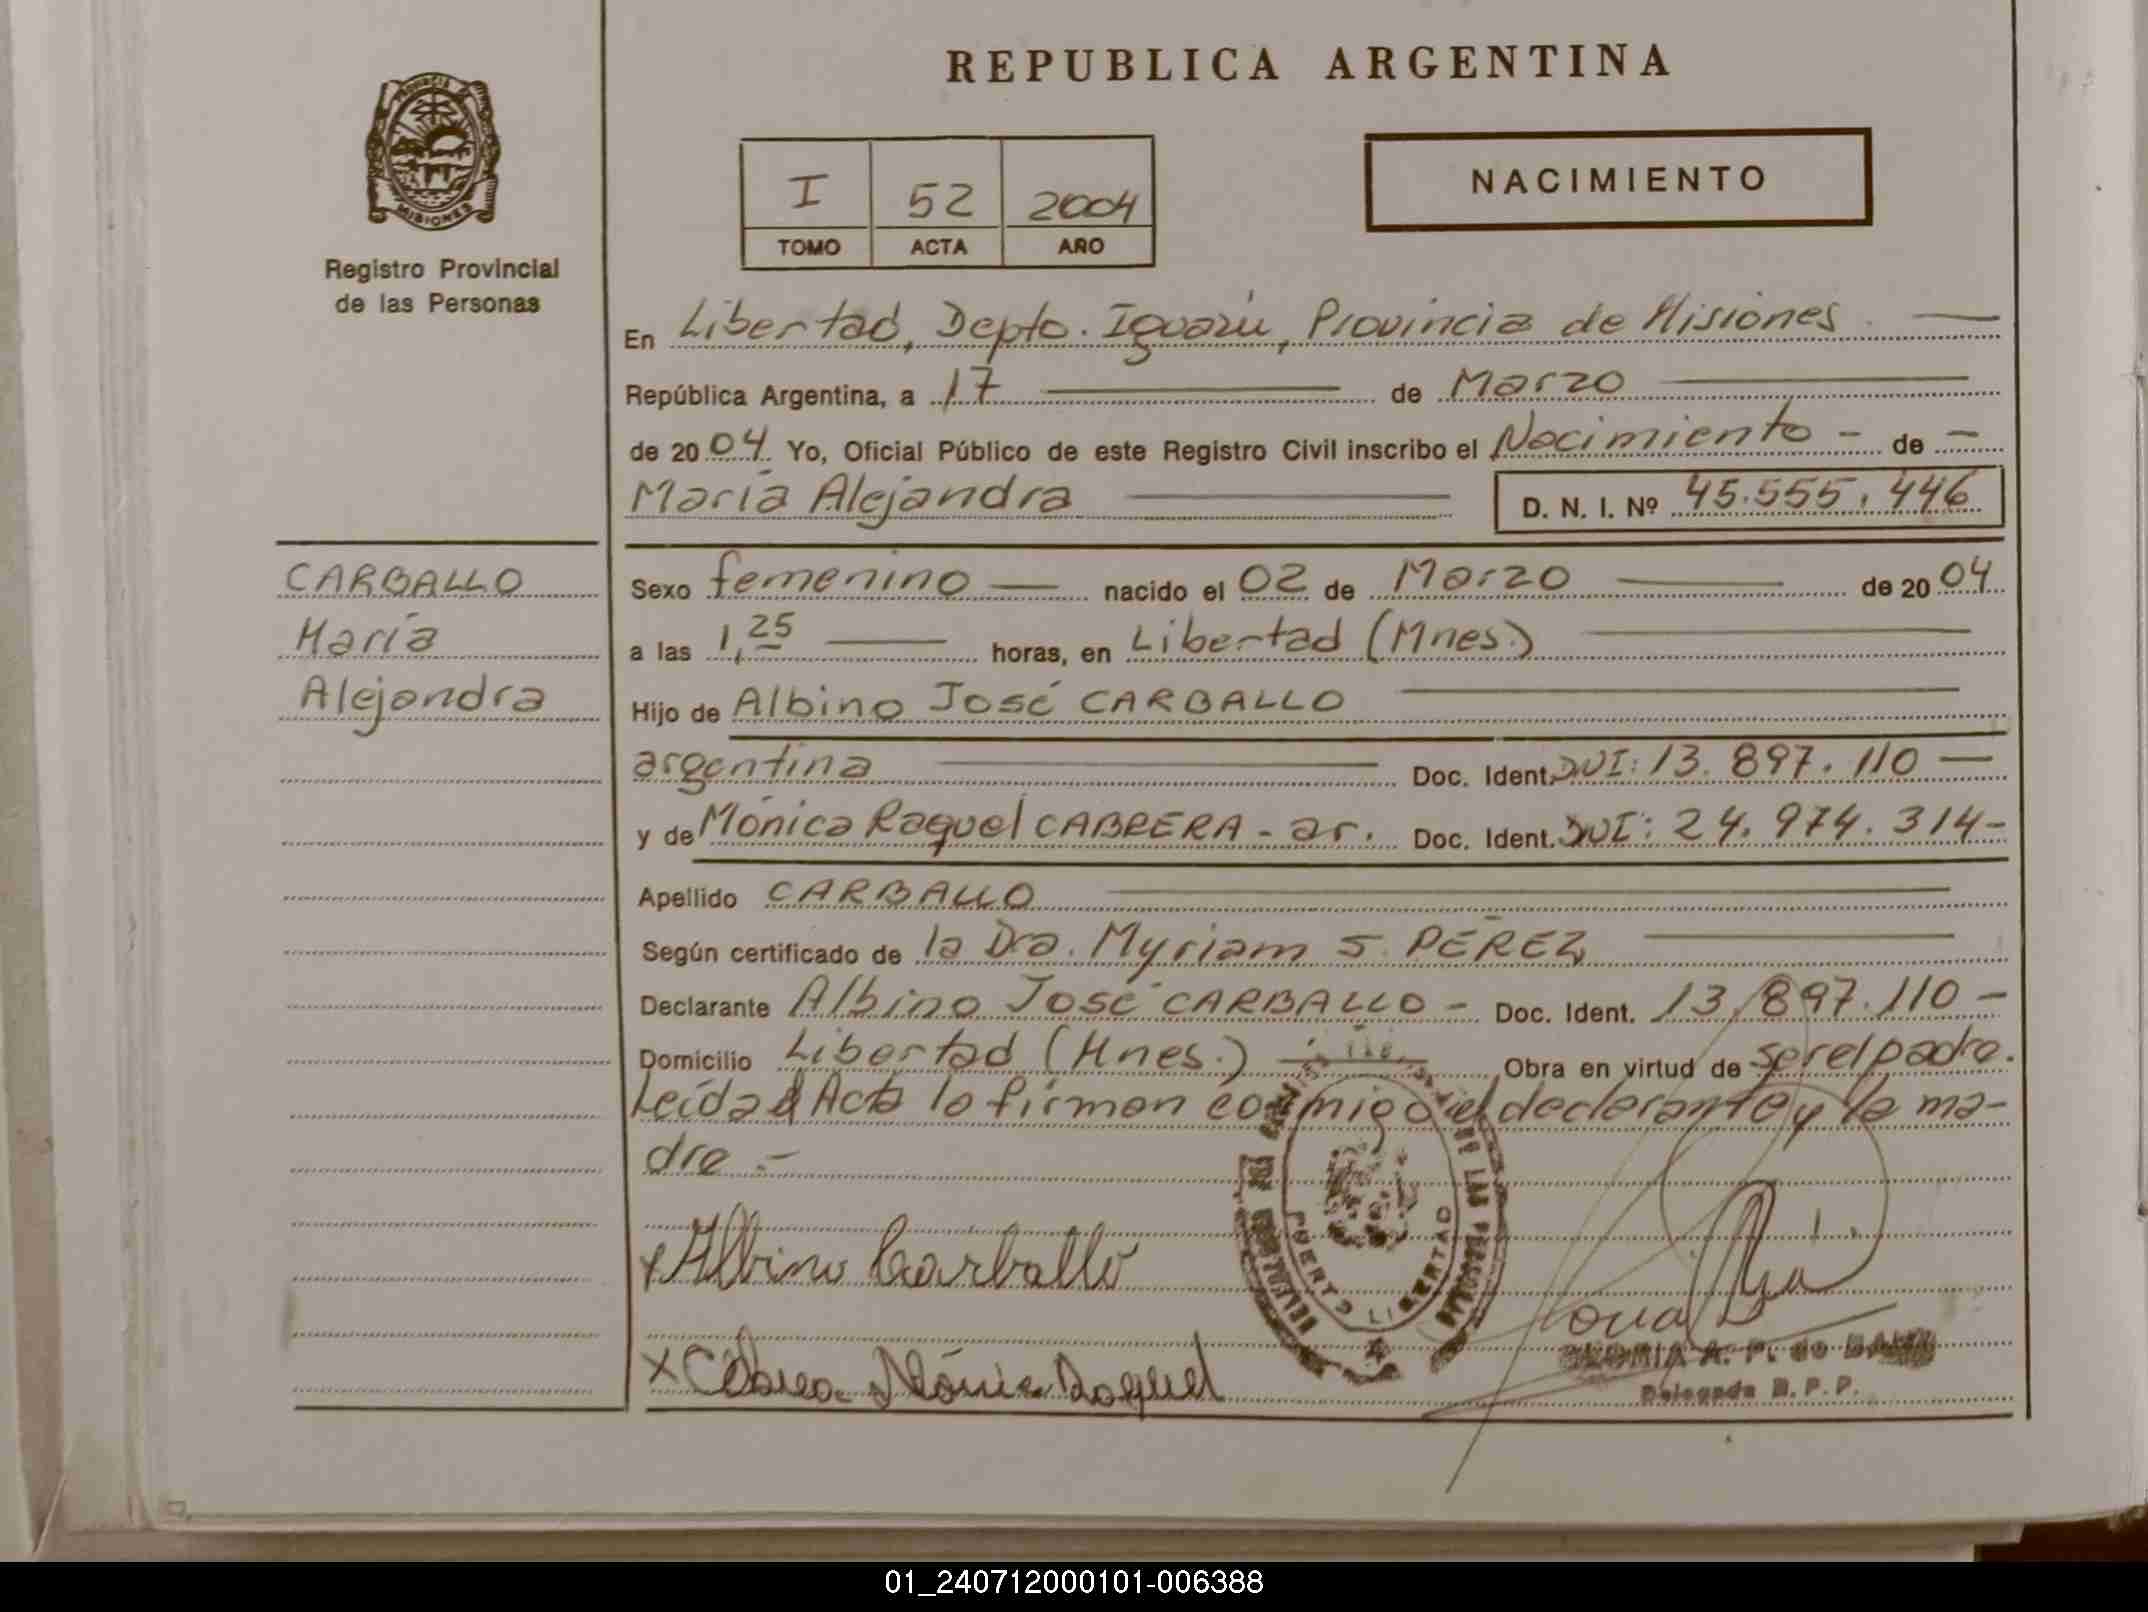 REPUBLICA ARGENTINA
MISIONES
Registro Provincial
de las Personas
I 52 2004
TOMO ACTA AÑO
NACIMIENTO
En Libertad, Depto. Iguazú, Provincia de Misiones.
República Argentina, a 17 de Marzo
de 2004 Yo, Oficial Público de este Registro Civil inscribo el Nacimiento - de -
María Alejandra D. N. I. Nº 45.555.446
CARBALLO
María
Alejandra
Sexo femenino nacido el 02 de Marzo de 2004
a las 1,25 horas, en Libertad (Mnes.)
Hijo de Albino José CARBALLO
argentina Doc. Ident. DNI: 13.897.110
y de Mónica Raquel CABRERA - ar. Doc. Ident. DNI: 24.974.314-
Apellido CARBALLO
Según certificado de la Dra. Myriam S. PÉREZ
Declarante Albino José CARBALLO - Doc. Ident. 13.897.110 -
Domicilio Libertad (Mnes.) Obra en virtud de ser el padre.
Leída el Acta la firman conmigo el declarante y la ma-
dre.-
x Albino Carballo
PUERTO LIBERTAD
DE LAS PERSONAS
x Cabrera Mónica Raquel
A. P. de
Delegada R. P. P.
01_240712000101-006388